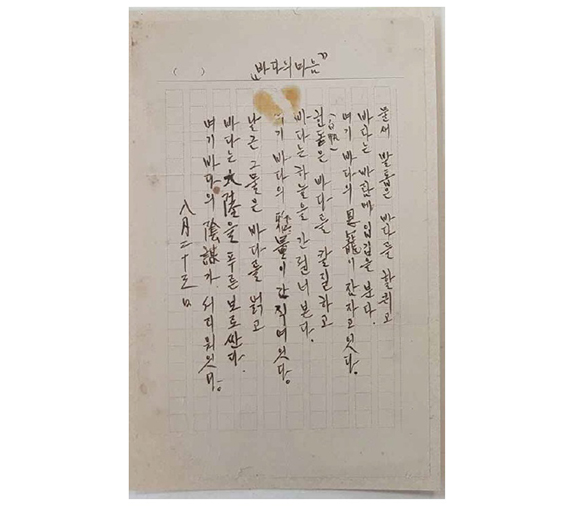 ( )
“바다의 마음”
물새 발톱은 바다를 할퀴고
바다는 바람에 입김을 분다.
여기 바다의 恩寵이 잠자고잇다.
(白帆)
흰돛은 바다를 칼질하고
바다는 하늘을 간질너 본다.
여기 바다의 雅量이 간직여잇다.
날근 그물은 바다를 얽고
바다는 大陸을 푸른 보로싼다.
여기 바다의 陰謀가 서리워잇다.
八月二十三日